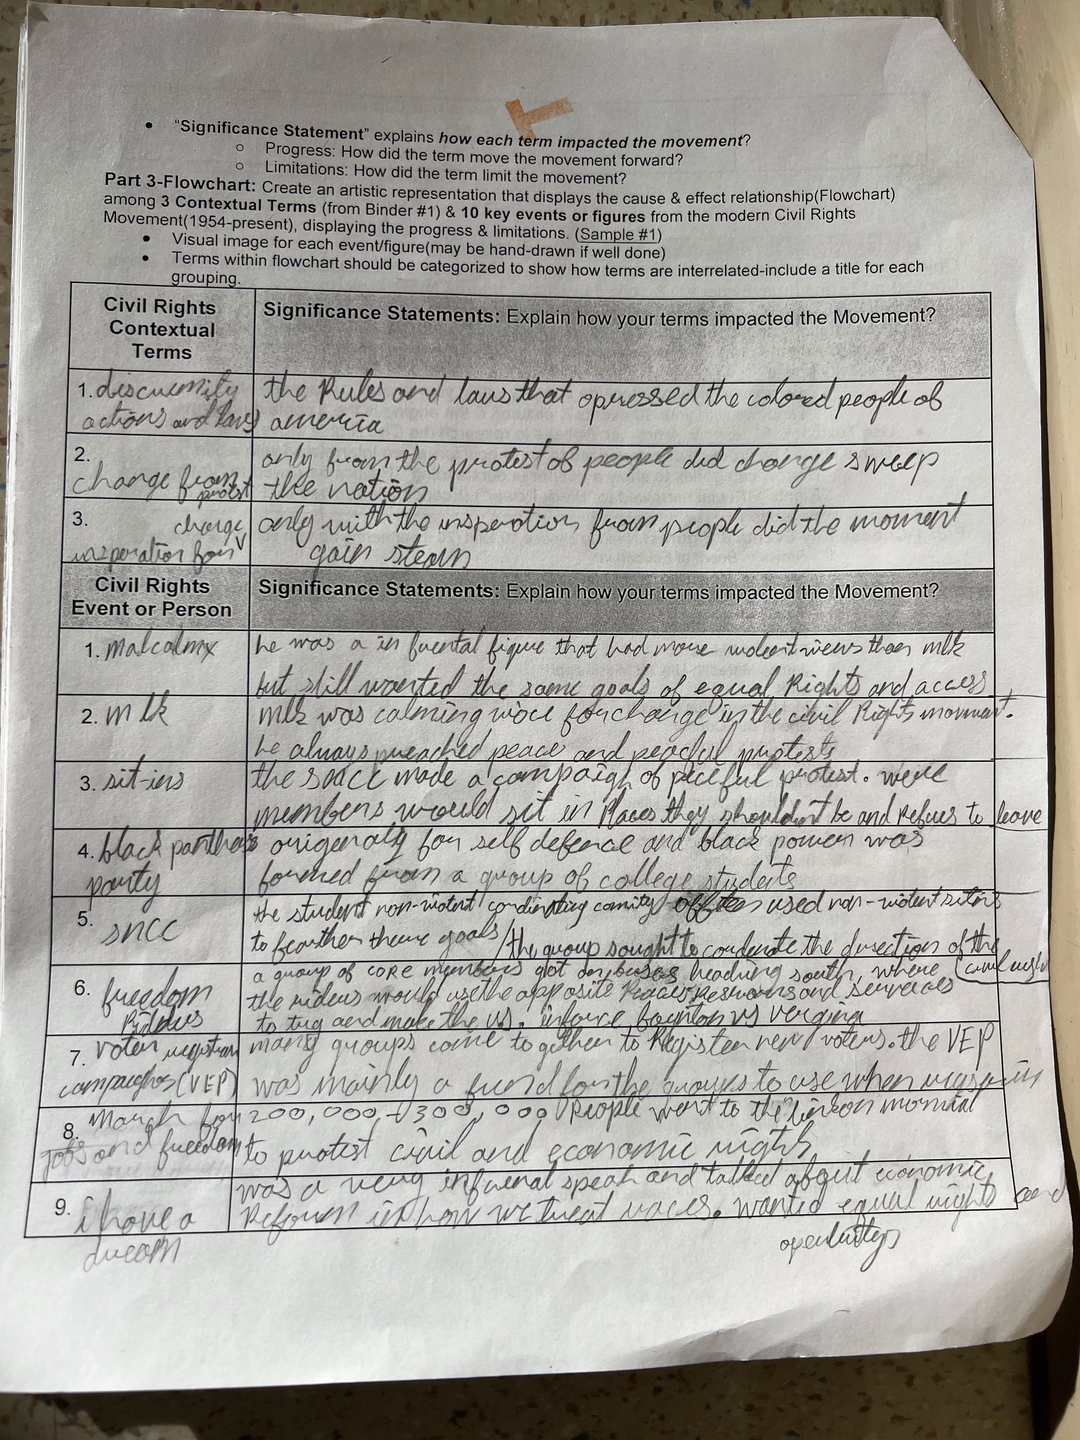 • "Significance Statement" explains how each term impacted the movement?
○ Progress: How did the term move the movement forward?
○ Limitations: How did the term limit the movement?
Part 3-Flowchart: Create an artistic representation that displays the cause & effect relationship(Flowchart)
among 3 Contextual Terms (from Binder #1) & 10 key events or figures from the modern Civil Rights
Movement(1954-present), displaying the progress & limitations. (Sample #1)
• Visual image for each event/figure(may be hand-drawn if well done)
• Terms within flowchart should be categorized to show how terms are interrelated-include a title for each
grouping.
Civil Rights
Contextual
Terms
Significance Statements: Explain how your terms impacted the Movement?
1.
actions and laws
the Rules and laws that opressed the colored people of
america
2.
change from
protest
only from the protest of people did change sweep
the nation
3.
change
insperation for
only with the insperation from people did the moment
gain steam
Civil Rights
Event or Person
Significance Statements: Explain how your terms impacted the Movement?
1. malcalmx
he was a figure that had more violent views then mlk
but still wanted the same goals of equal Rights and access
2. mlk
mlk was calming for change in the civil Rights
he always preached peace and peacful protests
3. sit-ins
the sncc made a campaigh of peceful protest. were
members would sit in Places they shouldnt be and Refues to leave
4. black
party
origenaly for self defence and black power was
formed from a group of college students
5.
sncc
the student non-violent used non-violent
to goals / the group sought to the direction of the
6. freedom
Riders
a group of core members got on buses heading south, where
the riders would use the opposite Races Restrooms and
to try and make the us.
7. voter
(VEP)
many groups come together to Register new voters. the VEP
was mainly a fund for the groups to use when
8. march for
jobs and freedom
200,000-300,000 People went to the
to protest civil and economic rights
9. i have a
dream
was a very and talked about economic
Reform in how we treat races. wanted equal rights and